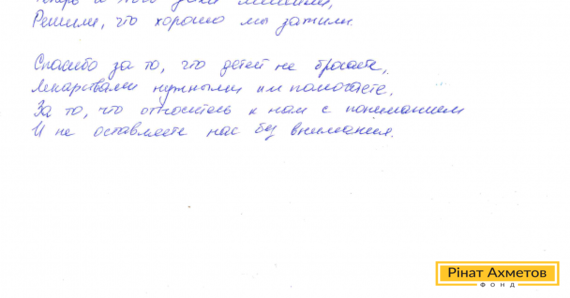 Решили, что хорошо мы зажили.
Спасибо за то, что детей не бросаете,
Лекарствами нужными им помогаете,
За то, что относитесь к нам с пониманием
И не оставляете нас без внимания.
Рінат Ахметов
ФОНД